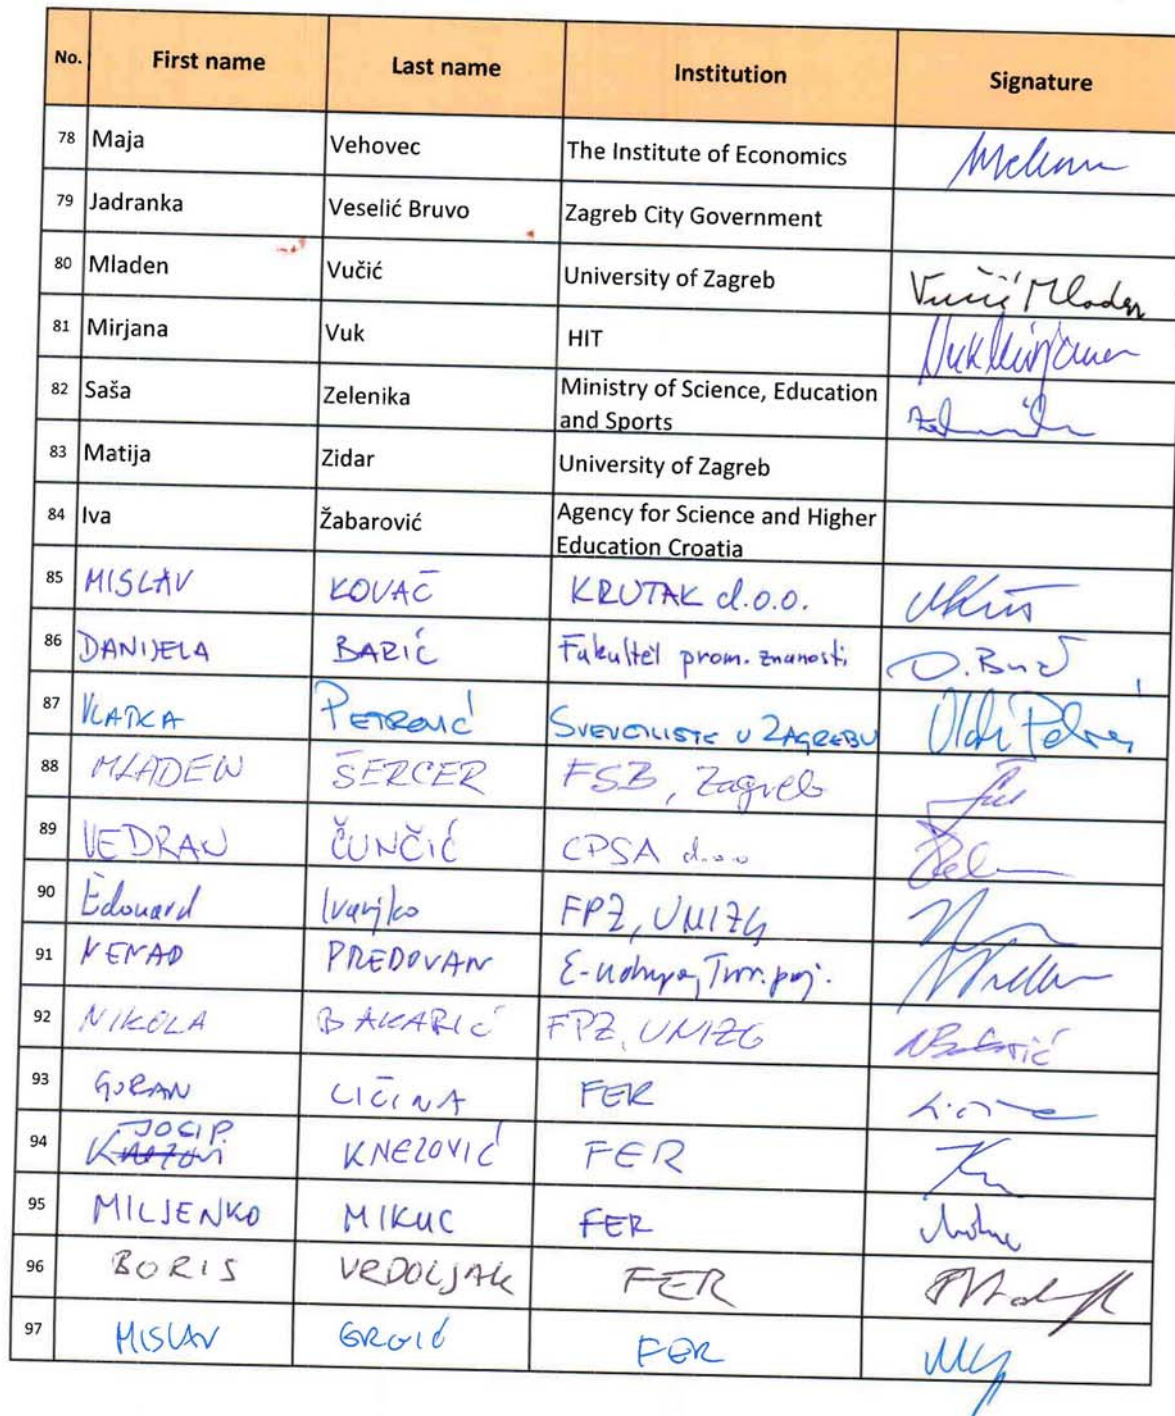 No. First name Last name Institution Signature
78 Maja Vehovec The Institute of Economics
79 Jadranka Veselić Bruvo Zagreb City Government
80 Mladen Vučić University of Zagreb Vučić Mladen
81 Mirjana Vuk HIT Vuk Mirjana
82 Saša Zelenika Ministry of Science, Education
and Sports
83 Matija Zidar University of Zagreb
84 Iva Žabarović Agency for Science and Higher
Education Croatia
85 MISLAV KOVAČ KRUTAK d.o.o.
86 DANIJELA BARIĆ Fakultet prom. znanosti
87 VLATKA PETROVIĆ SVEUČILIŠTE U ZAGREBU
88 MLADEN ŠERCER FSB, Zagreb
89 VEDRAN ČUNČIĆ CPSA d.o.o
90 Edouard Ivanjko FPZ, UNIZG
91 NENAD PREDOVAN
92 NIKOLA BAKARIĆ FPZ, UNIZG
93 GORAN LIČINA FER
94 JOSIP KNEZOVIĆ FER
95 MILJENKO MIKUC FER
96 BORIS VRDOLJAK FER
97 MISLAV GRGIĆ FER